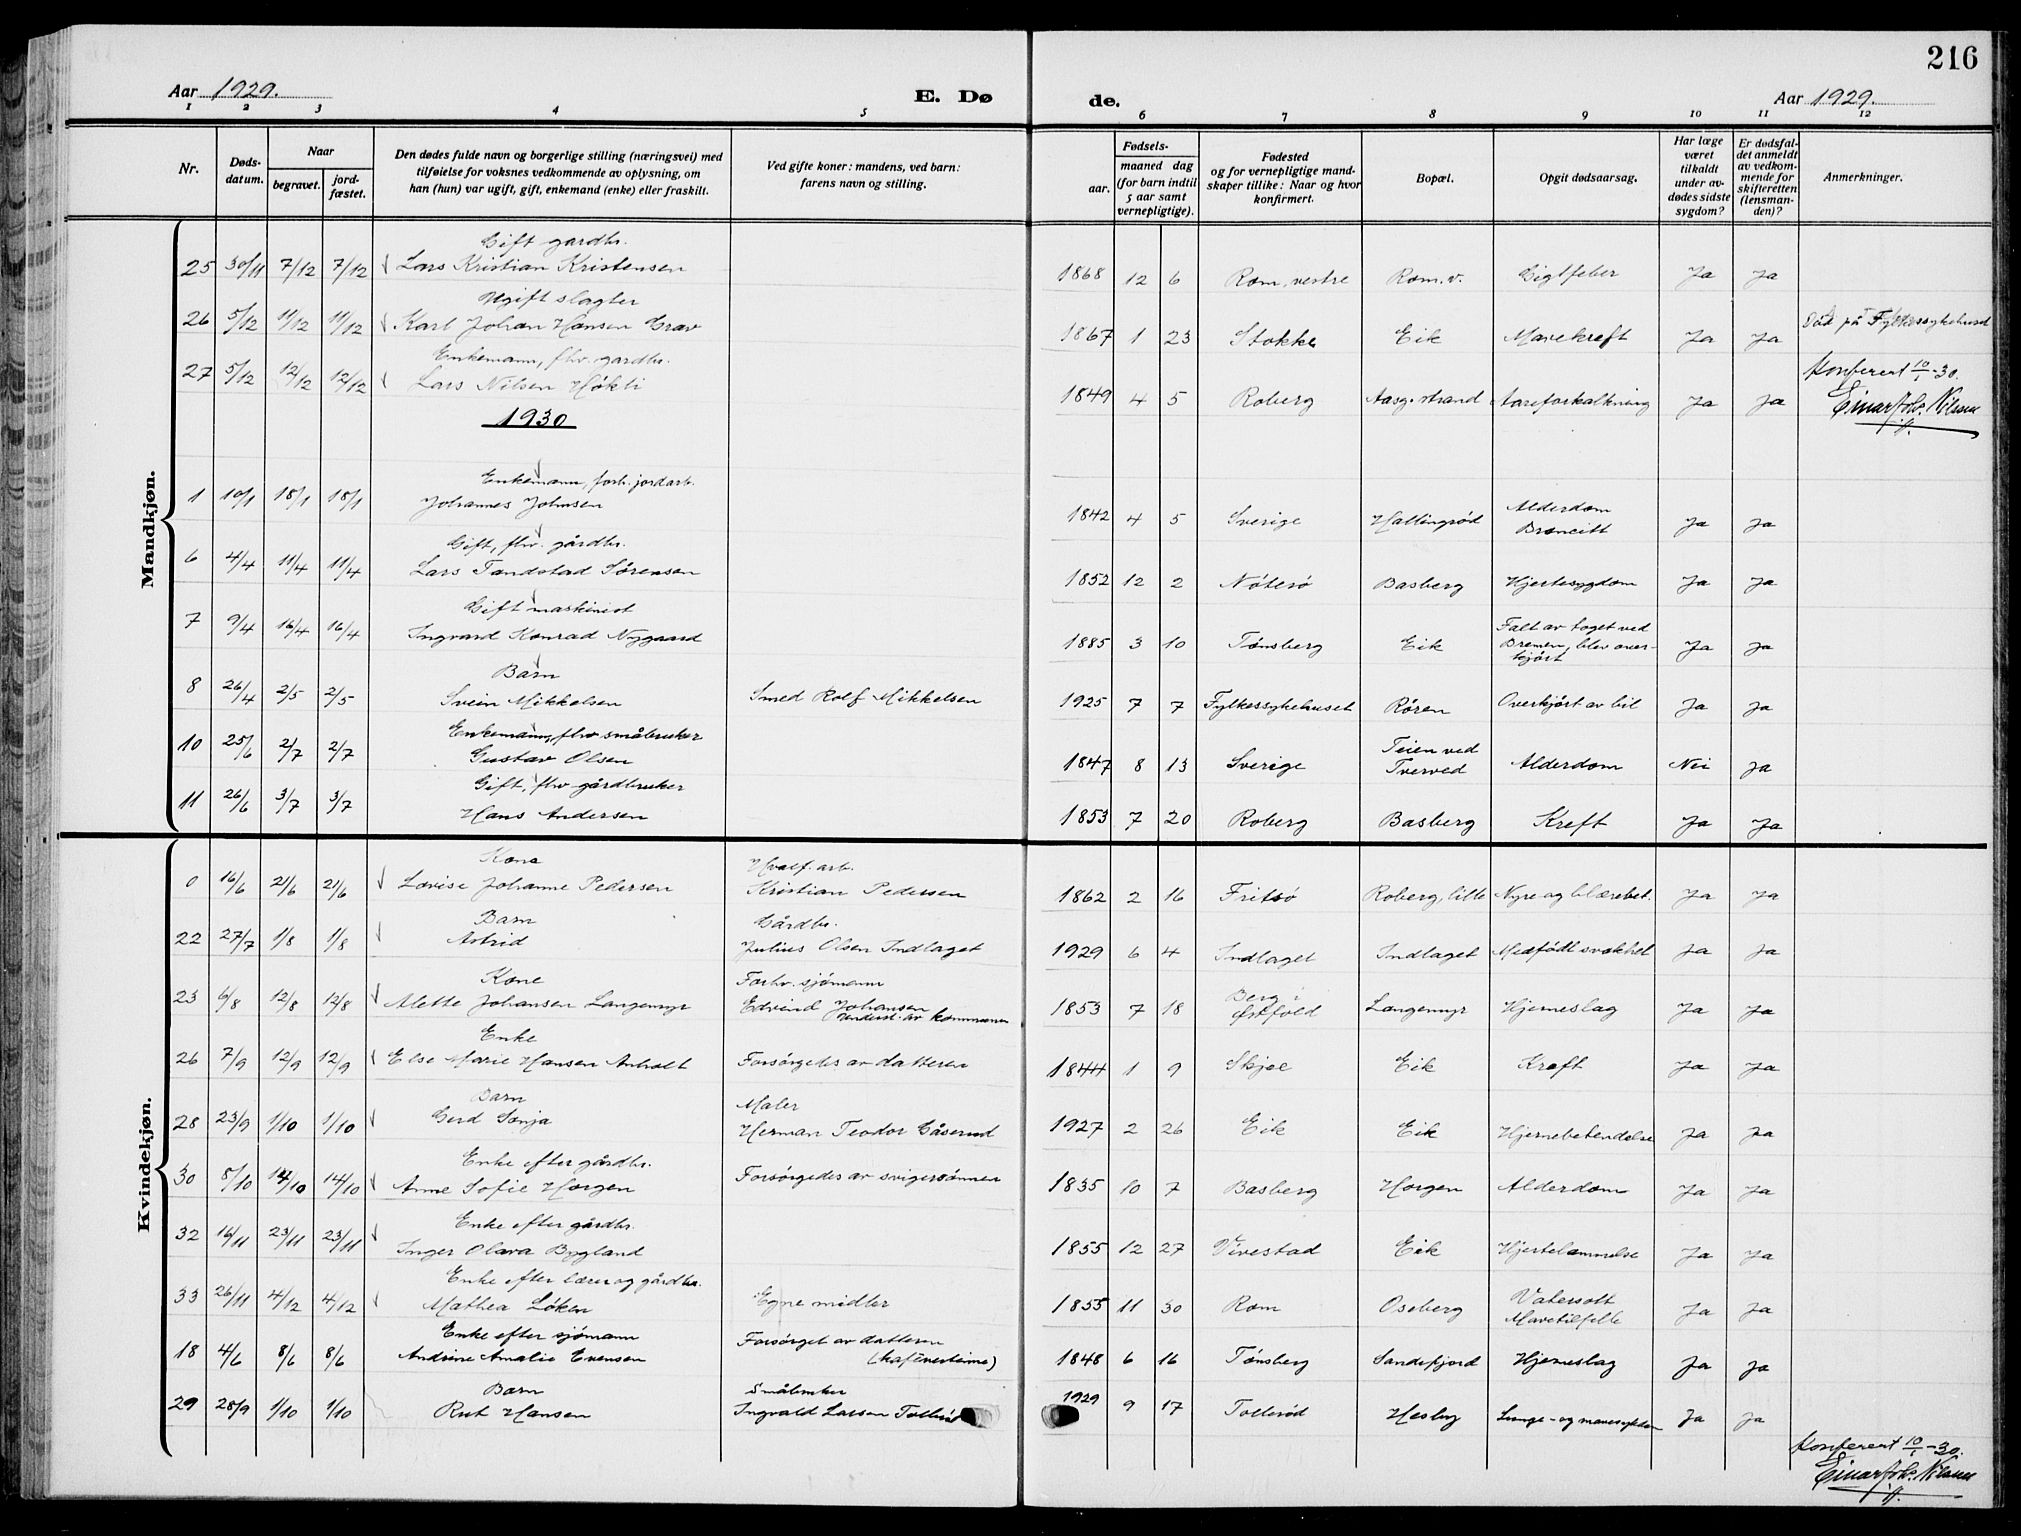 216
Aar 1929.
E. Dø
de.
Aar 1929.
1 2 3 4 5 6 7 8 9 10 11 12
Nr.
Døds-
datum.
Naar
begravet.
jord-
fæstet.
Den dødes fulde navn og borgerlige stilling (næringsvei) med
tilføielse for voksnes vedkommende av oplysning, om
han (hun) var ugift, gift, enkemand (enke) eller fraskilt.
Ved gifte koner: mandens, ved barn:
farens navn og stilling.
Fødsels-
aar.
maaned dag
(for barn indtil
5 aar samt
vernepligtige).
Fødested
og for vernepligtige mand-
skaper tillike: Naar og hvor
konfirmert.
Bopæl.
Opgit dødsaarsag.
Har læge
været
tilkaldt
under av-
dødes sidste
sygdom?
Er dødsfal-
det anmeldt
av vedkom-
mende for
skifteretten
(lensman-
den)?
Anmerkninger.
Mandkjøn.
Gift gardbr.
25 30/11 7/12 7/12 Lars Kristian Kristensen 1868 12 6 Rom, vestre Rom. v. Gigtfeber Ja Ja
Ugift slagter
26 5/12 11/12 11/12 Karl Johan Hansen Grav 1867 1 23 Stokke Eik Mavekreft Ja Ja Død på Fylkessykehuset
Enkemann, fhv. gardbr.
27 5/12 12/12 12/12 Lars Nilsen Høkli 1849 4 5 Roberg Aasg.strand Aareforkalkning Ja Ja
Konferert 10/1-30.
Einar Joh. Nilssen
1930
Enkemann, forh. jordarb.
1 10/1 18/1 18/1 Johannes Johnsen 1842 4 5 Sverige Hallingrød Alderdom
Broncitt Ja Ja
Gift, fhv. gårdbr.
6 4/4 11/4 11/4 Lars Tandstad Sørensen 1852 12 2 Nøterø Basberg Hjertesygdom Ja Ja
Gift maskinist
7 9/4 16/4 16/4 Ingvard Konrad Nygaard 1885 3 10 Tønsberg Eik Falt av toget ved
Bremen, blev over-
kjørt Ja Ja
Barn
8 26/4 2/5 2/5 Svein Mikkelsen Smed Rolf Mikkelsen 1925 7 7 Fylkessykehuset Røren Overkjørt av bil Ja Ja
Enkemann, fhv småbruker
10 25/6 2/7 2/7 Gustav Olsen 1847 8 13 Sverige Teien ved
Tverved Alderdom Nei Ja
Gift, fhv gårdbruker
11 26/6 3/7 3/7 Hans Andersen 1853 7 20 Roberg Basberg Kreft Ja Ja
Kvindekjøn.
Kone Hvalf. arb.
0 16/6 21/6 21/6 Lovise Johanne Pedersen Kristian Pedersen 1862 2 16 Fritsø Roberg, lille Nyre og blærebet. Ja Ja
Barn Gårdbr.
22 27/7 1/8 1/8 Astrid Julius Olsen Indlaget 1929 6 4 Indlaget Indlaget Medfødt svakhet Ja Ja
Kone Forhv. sjømann
23 6/8 12/8 12/8 Alette Johansen Langemyr Edvind Johansen
underst. av kommunen 1853 7 18 Berg i
Østfold Langemyr Hjerneslag Ja Ja
Enke
26 7/9 12/9 12/9 Else Marie Hansen Anholt Forsørgedes av datteren 1844 1 9 Skjee Eik Kreft Ja Ja
Barn Maler
28 23/9 1/10 1/10 Gerd Sonja Herman Teodor Gåserud 1927 2 26 Eik Eik Hjernebetendelse Ja Ja
Enke efter gårdbr.
30 8/10 14/10 14/10 Anne Sofie Horgen Forsørgedes av svigersønnen 1835 10 7 Basberg Horgen Alderdom Ja Ja
Enke efter gårdbr.
32 16/11 23/11 23/11 Inger Olava Bygland 1855 12 27 Vivestad Eik Hjertelammelse Ja Ja
Enke efter lærer og gårdbr.
33 26/11 4/12 4/12 Mathea Løken Egne midler 1855 11 30 Rom Oseberg Vatersott
Mavetilfelle Ja Ja
Enke efter sjømann Forsørget av datteren
18 4/6 8/6 8/6 Andrine Amalie Evensen (kafévertinne) 1848 6 16 Tønsberg Sandefjord Hjerneslag Ja Ja
Barn Småbruker
29 28/9 1/10 1/10 Rut Hansen Ingvald Larsen 1929 9 17 Tollerød Hesby Lunge- og mavesykdom Ja Ja
Konferert 10/1-30.
Einar Joh. Nilssen